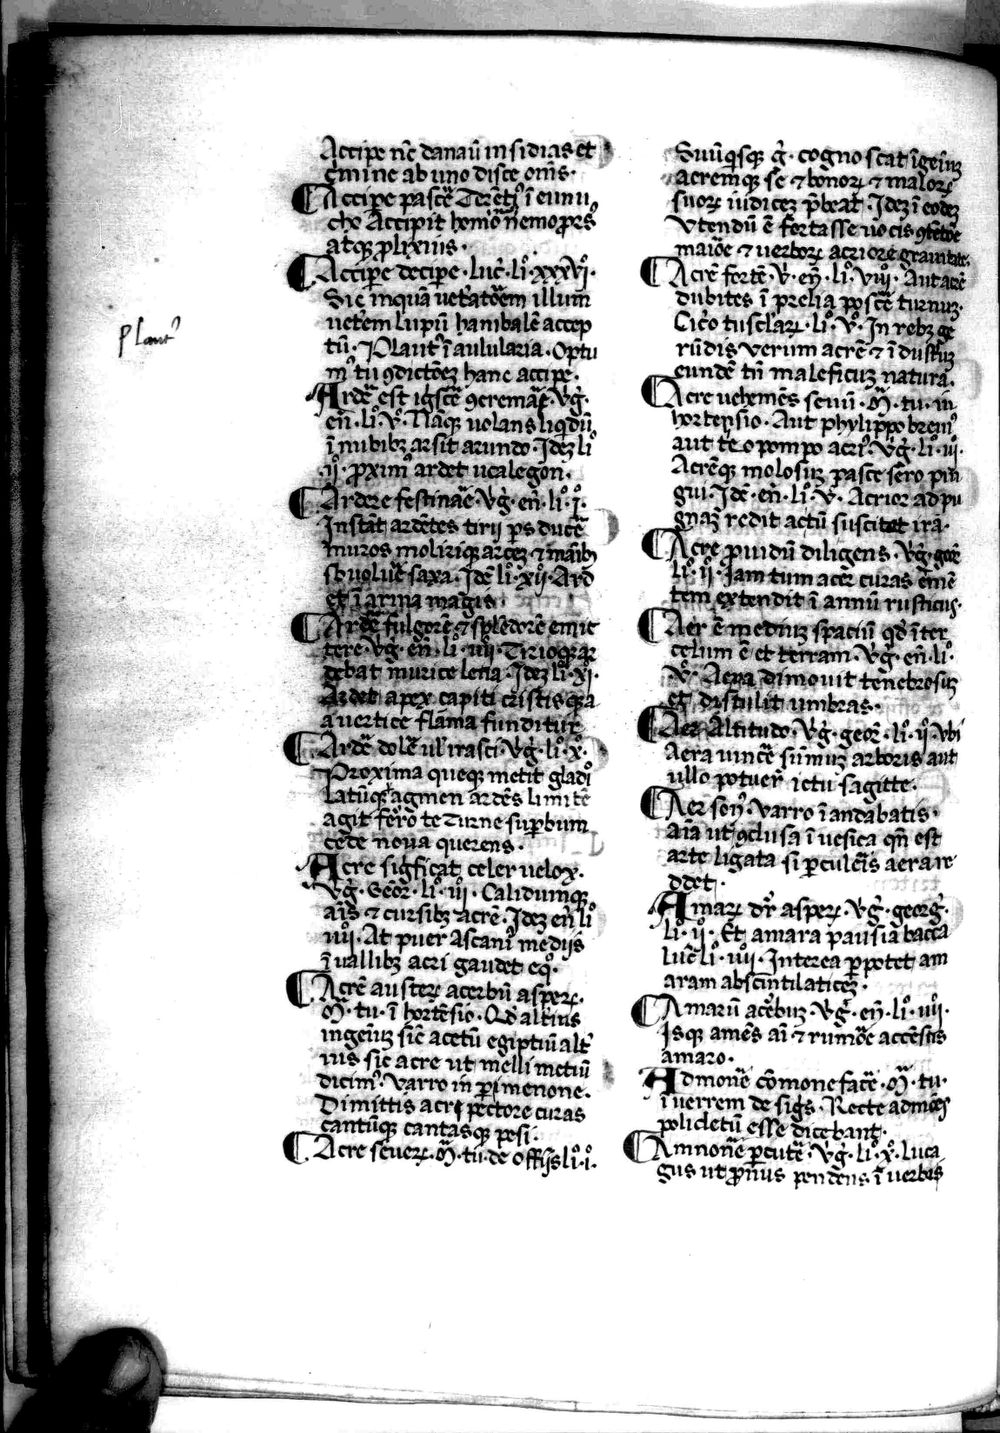 Plaut᾽
Accipe nc̄ danaū insidias et
c̄mine ab uno disce om̄s·
Accipe pascē Terēti᾽ ī eunu
cho Accipit homō nemo p̄rs᾽
atqꝫ ꝓlixius·
Accipe decipe·luc̄·li᾽·xxxvi᾽·
Sic inquā uet̄atōem illum
uet̄em lupū hanibalē accep
tū·Plaut᾽ ī aulularia·Optu
m᾽ tu ꝯdictōeꝫ hanc accipe·
Ardē est igscē ꝯcremar̄·Vg᾽·
en̄·li᾽·v᾽·Nāqꝫ uolans liqdū
ī nubibꝫ arsit arundo·Ideꝫ li᾽
ij᾽·ꝓxim᾽ ardet ucalegon·
Ardere festinar̄·vg᾽·en̄·li᾽·i᾽·
Instāt ardētes tirii ꝑs ducē
muros moliriqꝫ arceꝫ ⁊ maībꝫ
sb̄uoluē saxa·Idē li᾽·xij᾽·Ard
et ī arma magis·
Ardē fulgorē ⁊ splēdorē emit
tere·vg᾽·en̄·li᾽·iiij᾽·Tirioqꝫ ar
debat murice lena·Ideꝫ li᾽·xi᾽·
Ardet apex capiti cristisqꝫ a
a uertice flāma funditur
Ardē dolē ul᾽ irasci·vg᾽·li᾽·x᾽·
Proxima queqꝫ metit gladi᾽
latūqꝫ agmen ardēs limitē
agit fer̄o te Turne suꝑbum
cēde noua querens·
Acre sigficat celer uelox·
Vg᾽·Geor̄·li᾽·iij᾽·Calidumqꝫ
aīs ⁊ cursibꝫ acrē·Ideꝫ en̄ li᾽
iiij᾽·At puer ascani᾽ mediis
ī uallibꝫ acri gaudet eq᾽·
Acrē austeꝝ acerbū aspeꝝ·
M̄·tu·ī hortēsio·Qd̄ alti᾽us
ingeniꝫ sic̄ acetū egiptiū alt᾽
ius sic acre ut melli metiū
dicim᾽·Varro in ꝑimenone·
Dimittis acri pectore curas
cantūqꝫ cantasqꝫ pesi·
Acre seueꝝ·M̄·tu·de offīis li᾽·i᾽·
Suūqisqꝫ g᾽·cognoscat īgeniꝫ
acremqꝫ se ⁊ bonoꝝ ⁊ maloꝝ
suoꝝ iudiceꝫ p̄beat·Ideꝫ ī eodeꝫ
Vtendū ē fortasse uocis ꝯtētōe
maiōe ⁊ uerboꝝ acriore grauitate·
Acrē fortē·V·en̄·li᾽·viij᾽·Aut acrē
dubites ī prelia poscē turnuꝫ·
Cic̄o tusclaꝝ·li᾽·v᾽·In rebꝫ ge
rūdis verum acrē ⁊ īdustriꝫ
eundē tn̄ maleficuꝫ natura·
Acre uehemēs seuū·M̄·tu·in
hortensio·Aut phylippo brem᾽
aut teopompo acri᾽·vg᾽·li᾽·iij᾽·
Acrēqꝫ molosuꝫ pasce sero pin
gui·Idē·en̄·li᾽·v·Acrior ad pu
gnaꝫ redit actū suscitat ira·
Acre ꝓuidū diligens·vg᾽·geor̄
li᾽·ij᾽·Iam tum acer curas ēniē
tem extendit ī annū rusticus·
Aer ē mediuꝫ spaciū qd̄ īter
celum ē et terram·vg᾽·en̄·li᾽·
v᾽·Aera dimouit tenebrosuꝫ
et distulit umbras·
Aer Altitudo·vg᾽·geor̄·li᾽·ij᾽·vbi
aera uincē sūmuꝫ arboris aut
ullo potuer̄ ictu sagitte·
Aer son᾽·Varro ī andabatis·
aīa ut ꝯclusa ī uesica qn̄ est
arte ligata si ꝑculeīs aera re
ddet·
Amaꝝ dr̄ aspeꝝ·vg᾽·georg᾽·
li᾽·ij᾽·Et amara pausia bacca
luc̄ li᾽·iiij᾽·Interea ꝑpotet am
aram abscintilaticeꝫ·
Amarū ac̄ebuꝫ·vg᾽·en̄·li᾽·iiij᾽·
Isqꝫ amēs aī ⁊ rumōe accēsus
amaro·
Admonē cōmonefacē·M̄·tu·
ī uerrem de sigs·Recte admōes
policletū esse dicebant·
Amnonē ꝑcutē·vg᾽·li᾽·x᾽·luca
gus ut ꝓnus pendens ī uerbera